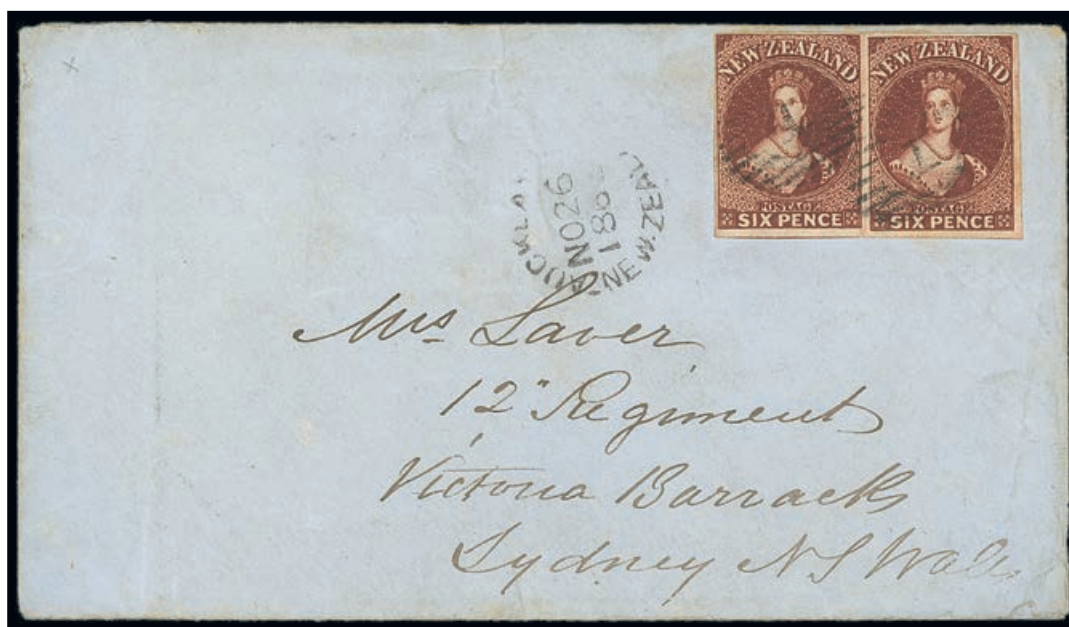 NEW ZEALAND
POSTAGE
SIX PENCE
NEW ZEALAND
POSTAGE
SIX PENCE
NO 26
NEW.ZEAL
Mrs Laver
12" Regiment
Victoria Barracks
Sydney N S Wales